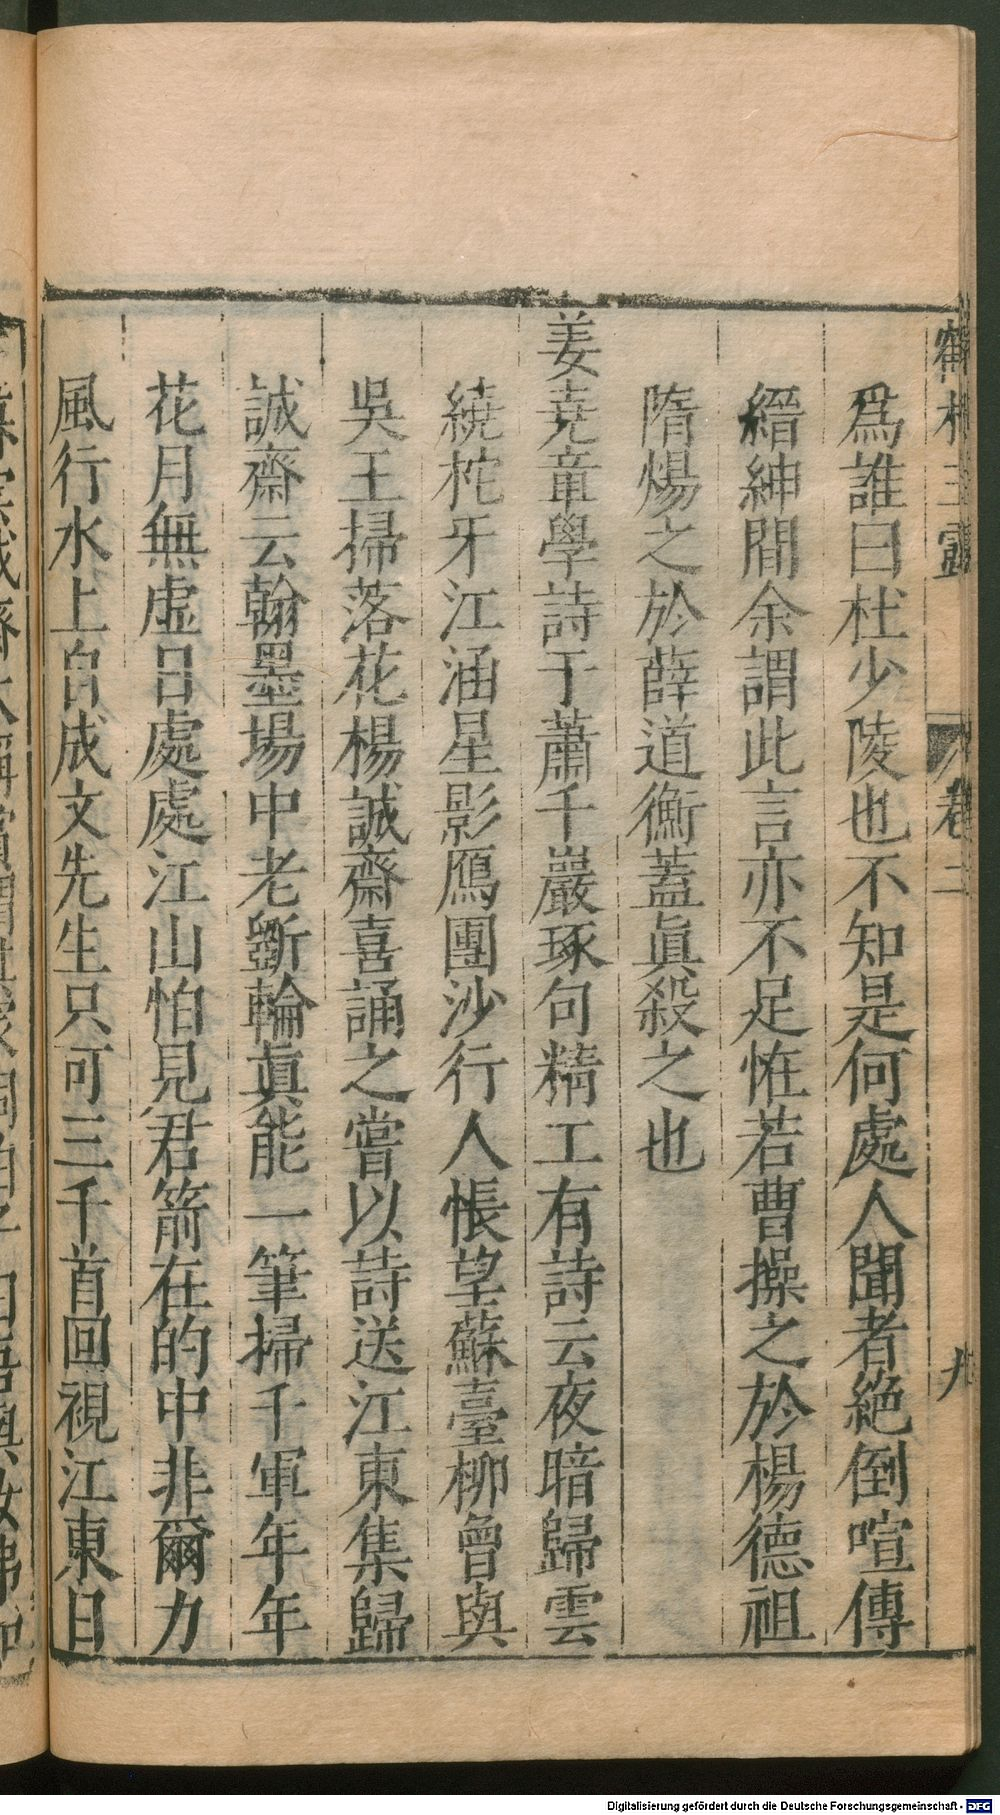 鶴林玉露 卷二 九
爲誰曰杜少陵也不知是何處人聞者絶倒喧傳
縉紳間余謂此言亦不足恠若曹操之於楊德祖
隋煬之於薛道衡蓋眞殺之也
姜堯章學詩于蕭千巖琢句精工有詩云夜暗歸雲
繞柁牙江涵星影鴈團沙行人悵望蘇臺柳曾與
吳王掃落花楊誠齋喜誦之嘗以詩送江東集歸
誠齋云翰墨場中老斲輪眞能一筆掃千軍年年
花月無虛日處處江山怕見君箭在的中非爾力
風行水上自成文先生只可三千首回視江東日
Digitalisierung gefördert durch die Deutsche Forschungsgemeinschaft - DFG